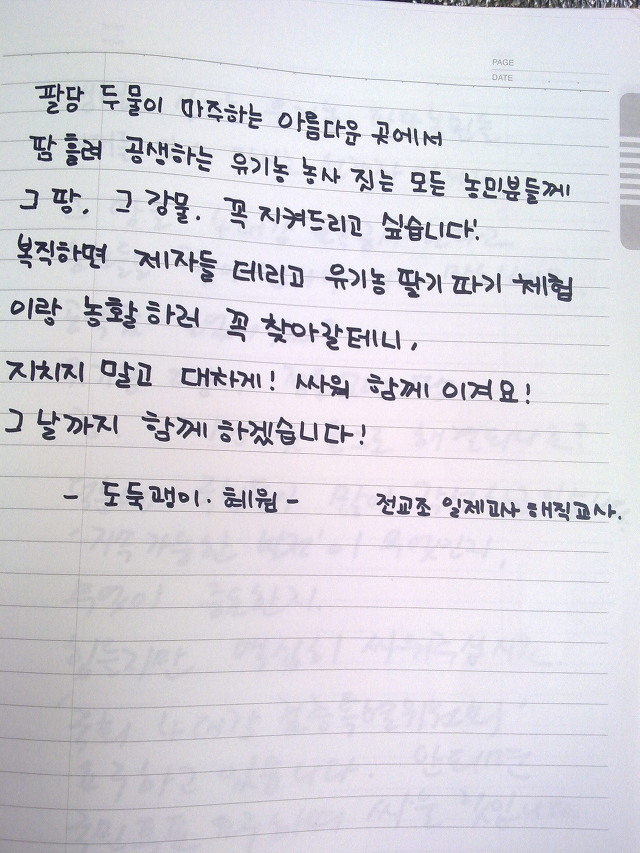 PAGE
DATE
팔당 두물이 마주하는 아름다운 곳에서
땀 흘려 공생하는 유기농 농사 짓는 모든 농민분들께
그 땅, 그 강물. 꼭 지켜드리고 싶습니다.
복직하면 제자들 데리고 유기농 딸기 따기 체험
이랑 농활하러 꼭 찾아갈테니,
지치지 말고 대차게! 싸워 함께 이겨요!
그 날까지 함께 하겠습니다!
- 도둑괭이. 혜원 - 전교조 일제고사 해직교사.